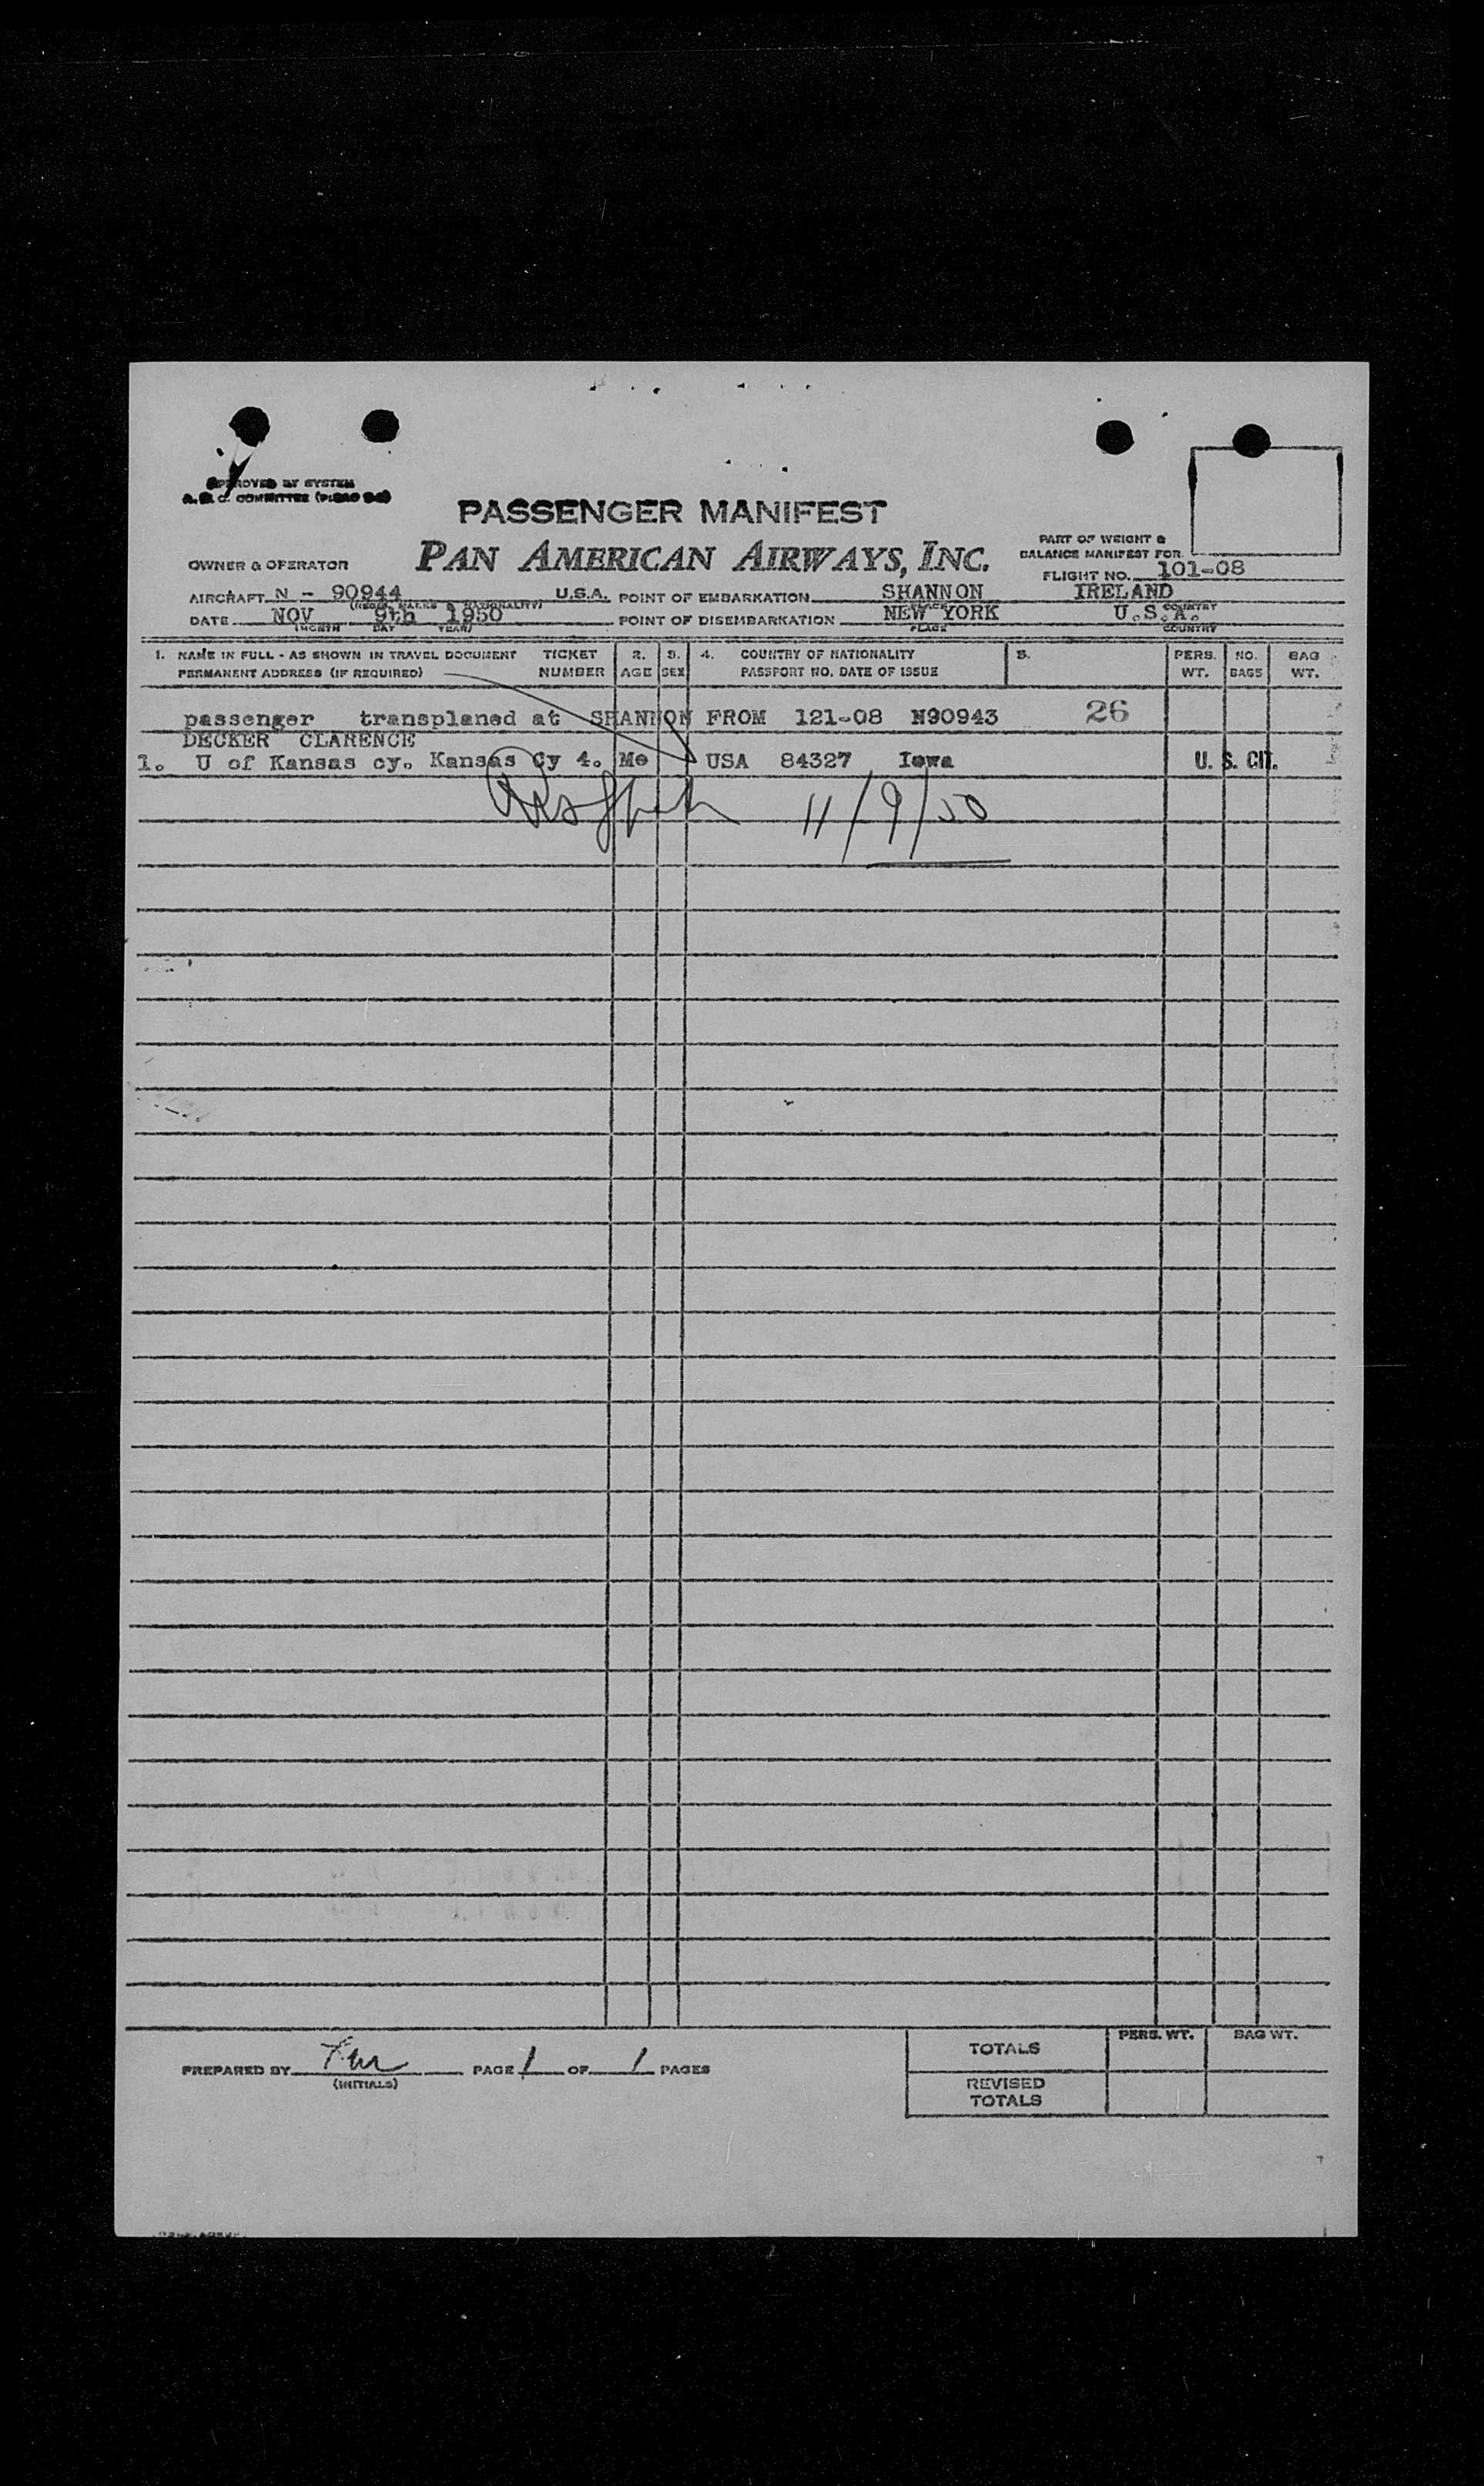 APPROVED BY SYSTEM
PASSENGER MANIFEST
PAN AMERICAN AIRWAYS, INC.
PART OF WEIGHT &
BALANCE MANIFEST FOR
OWNER & OPERATOR
FLIGHT NO. 101-08
AIRCRAFT N - 90944 U.S.A. POINT OF EMBARKATION SHANNON IRELAND
DATE NOV 9th 1950 POINT OF DISEMBARKATION NEW YORK U.S.A.
(MONTH DAY YEAR) PLACE COUNTRY
1. NAME IN FULL - AS SHOWN IN TRAVEL DOCUMENT TICKET 2. 3. 4. COUNTRY OF NATIONALITY 5. PERS. NO. BAG
PERMANENT ADDRESS (IF REQUIRED) NUMBER AGE SEX PASSPORT NO. DATE OF ISSUE WT. BAGS WT.
passenger transplaned at SHANNON FROM 121-08 N90943 26
DECKER CLARENCE
1. U of Kansas cy. Kansas Cy 4. Mo USA 84327 Iowa U. S. CIT.
11/9/50
PREPARED BY PAGE 1 OF 1 PAGES
(INITIALS)
PERS. WT. BAG WT.
TOTALS
REVISED
TOTALS